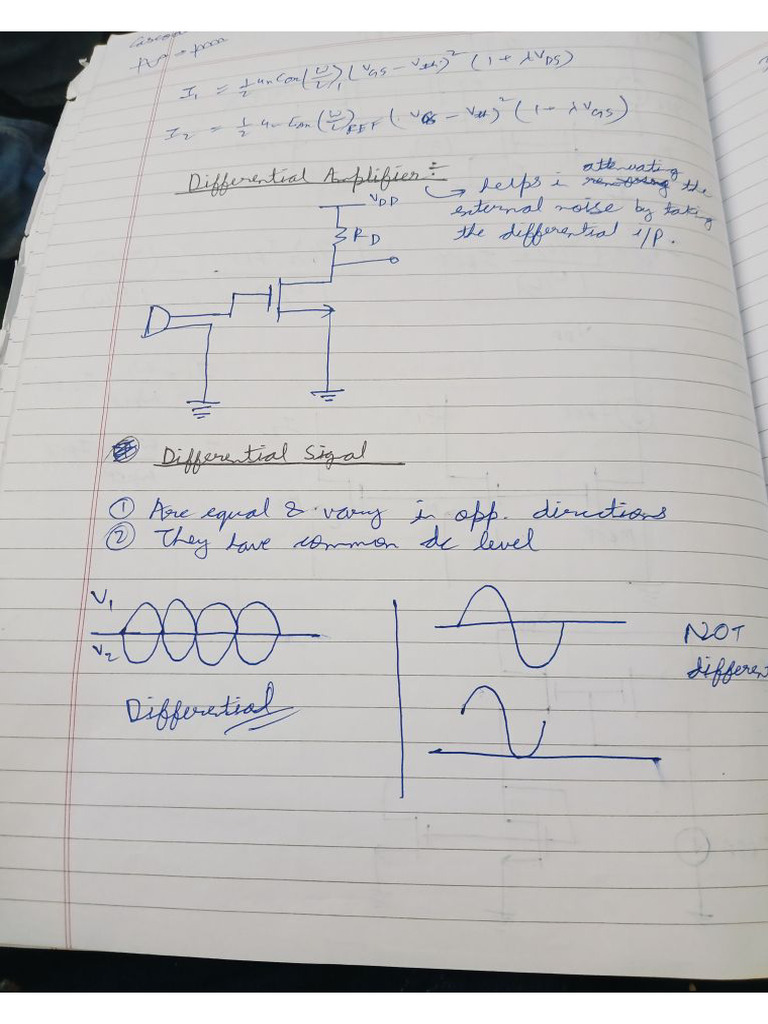 I₁ = 1/2 un Cox (W/L)₁ (VGS - Vth)² (1 + λVDS)
I₂ = 1/2 un Cox (W/L)REF (VGS - Vth)² (1 + λVGS)
Differential Amplifier :
attenuating
→ helps i the
external noise by taking
the differential i/p.
VDD
RD
Differential Sigal
① Are equal & vary in opp. directions
② They have common dc level
V₁
V₂
NOT
differen
Differential